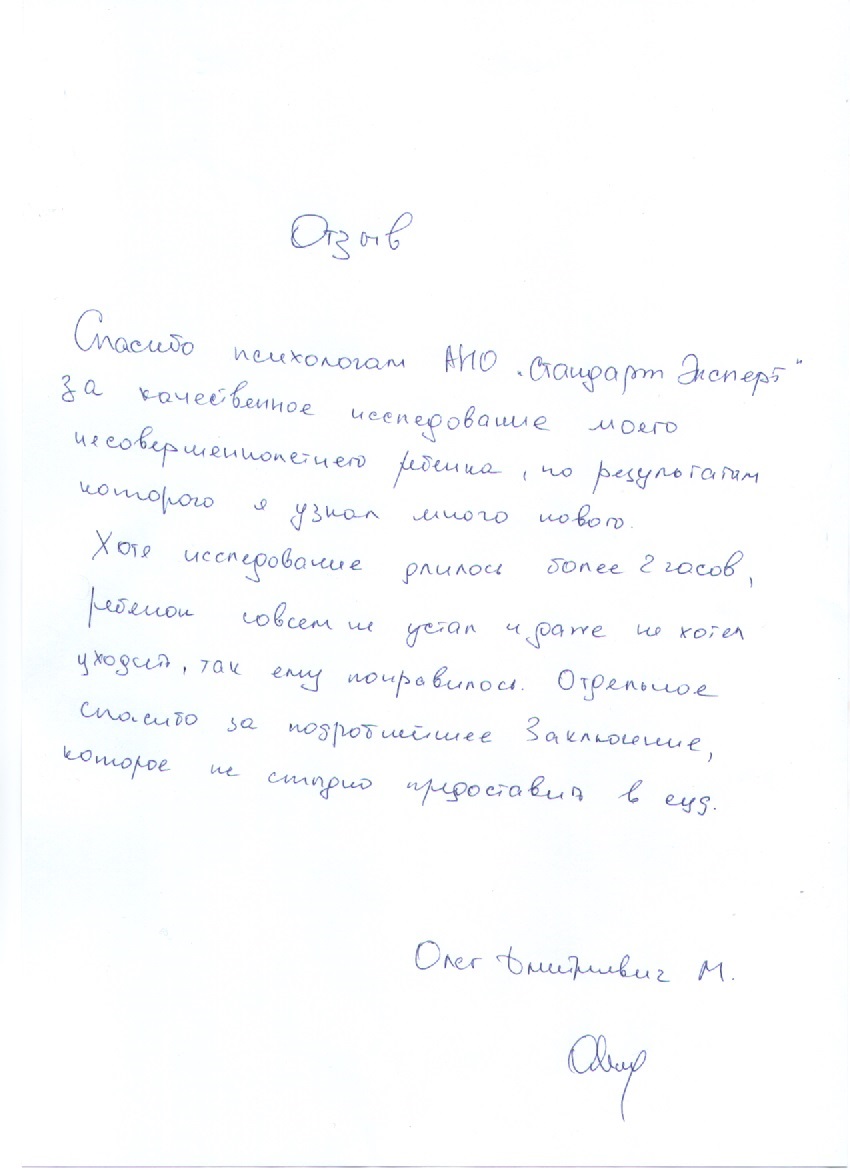 Отзыв
Спасибо психологам АНО "Стандарт Эксперт"
за качественное исследование моего
несовершеннолетнего ребенка, по результатам
которого я узнал много нового.
Хотя исследование длилось более 2 часов,
ребенок совсем не устал и даже не хотел
уходить, так ему понравилось. Отдельное
спасибо за подробнейшее Заключение,
которое не стыдно предоставить в суд.
Олег Дмитриевич М.